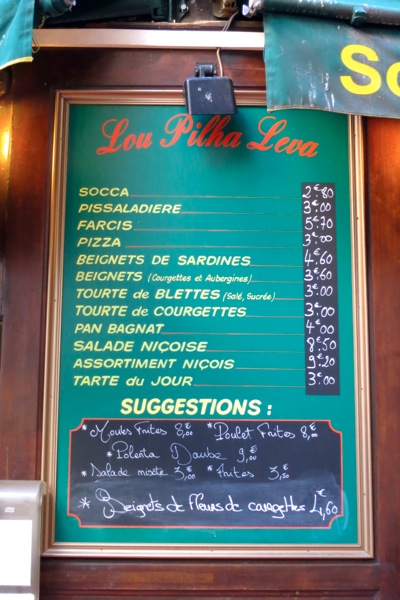 So
Lou Pilha Leva
SOCCA 2€80
PISSALADIERE 3€00
FARCIS 5€70
PIZZA 3€00
BEIGNETS DE SARDINES 4€60
BEIGNETS (Courgettes et Aubergines) 3€60
TOURTE de BLETTES (Salé, Sucrée) 3€00
TOURTE de COURGETTES 3€00
PAN BAGNAT 4€00
SALADE NIÇOISE 8€50
ASSORTIMENT NIÇOIS 9€20
TARTE du JOUR 3€00
SUGGESTIONS :
* Moules Frites 8,00€ * Poulet Frites 8,00€
* Polenta Daube 9,00€
* Salade mixte 3,00€ * Frites 3,50€
* Beignets de fleurs de courgettes 4,60€